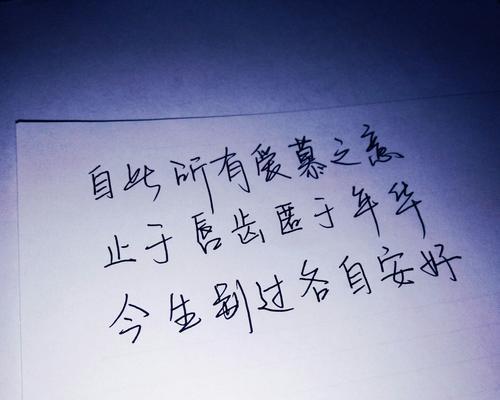 自此所有爱慕之意
止于唇齿匿于年华
今生别过各自安好